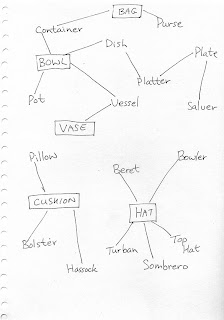 BAG
Container
Purse
Dish
BOWL
Plate
Platter
Pot
Vessel
Salver
VASE
Pillow
Beret
Bowler
CUSHION
HAT
Bolster
Turban
Top
Hat
Hassock
Sombrero